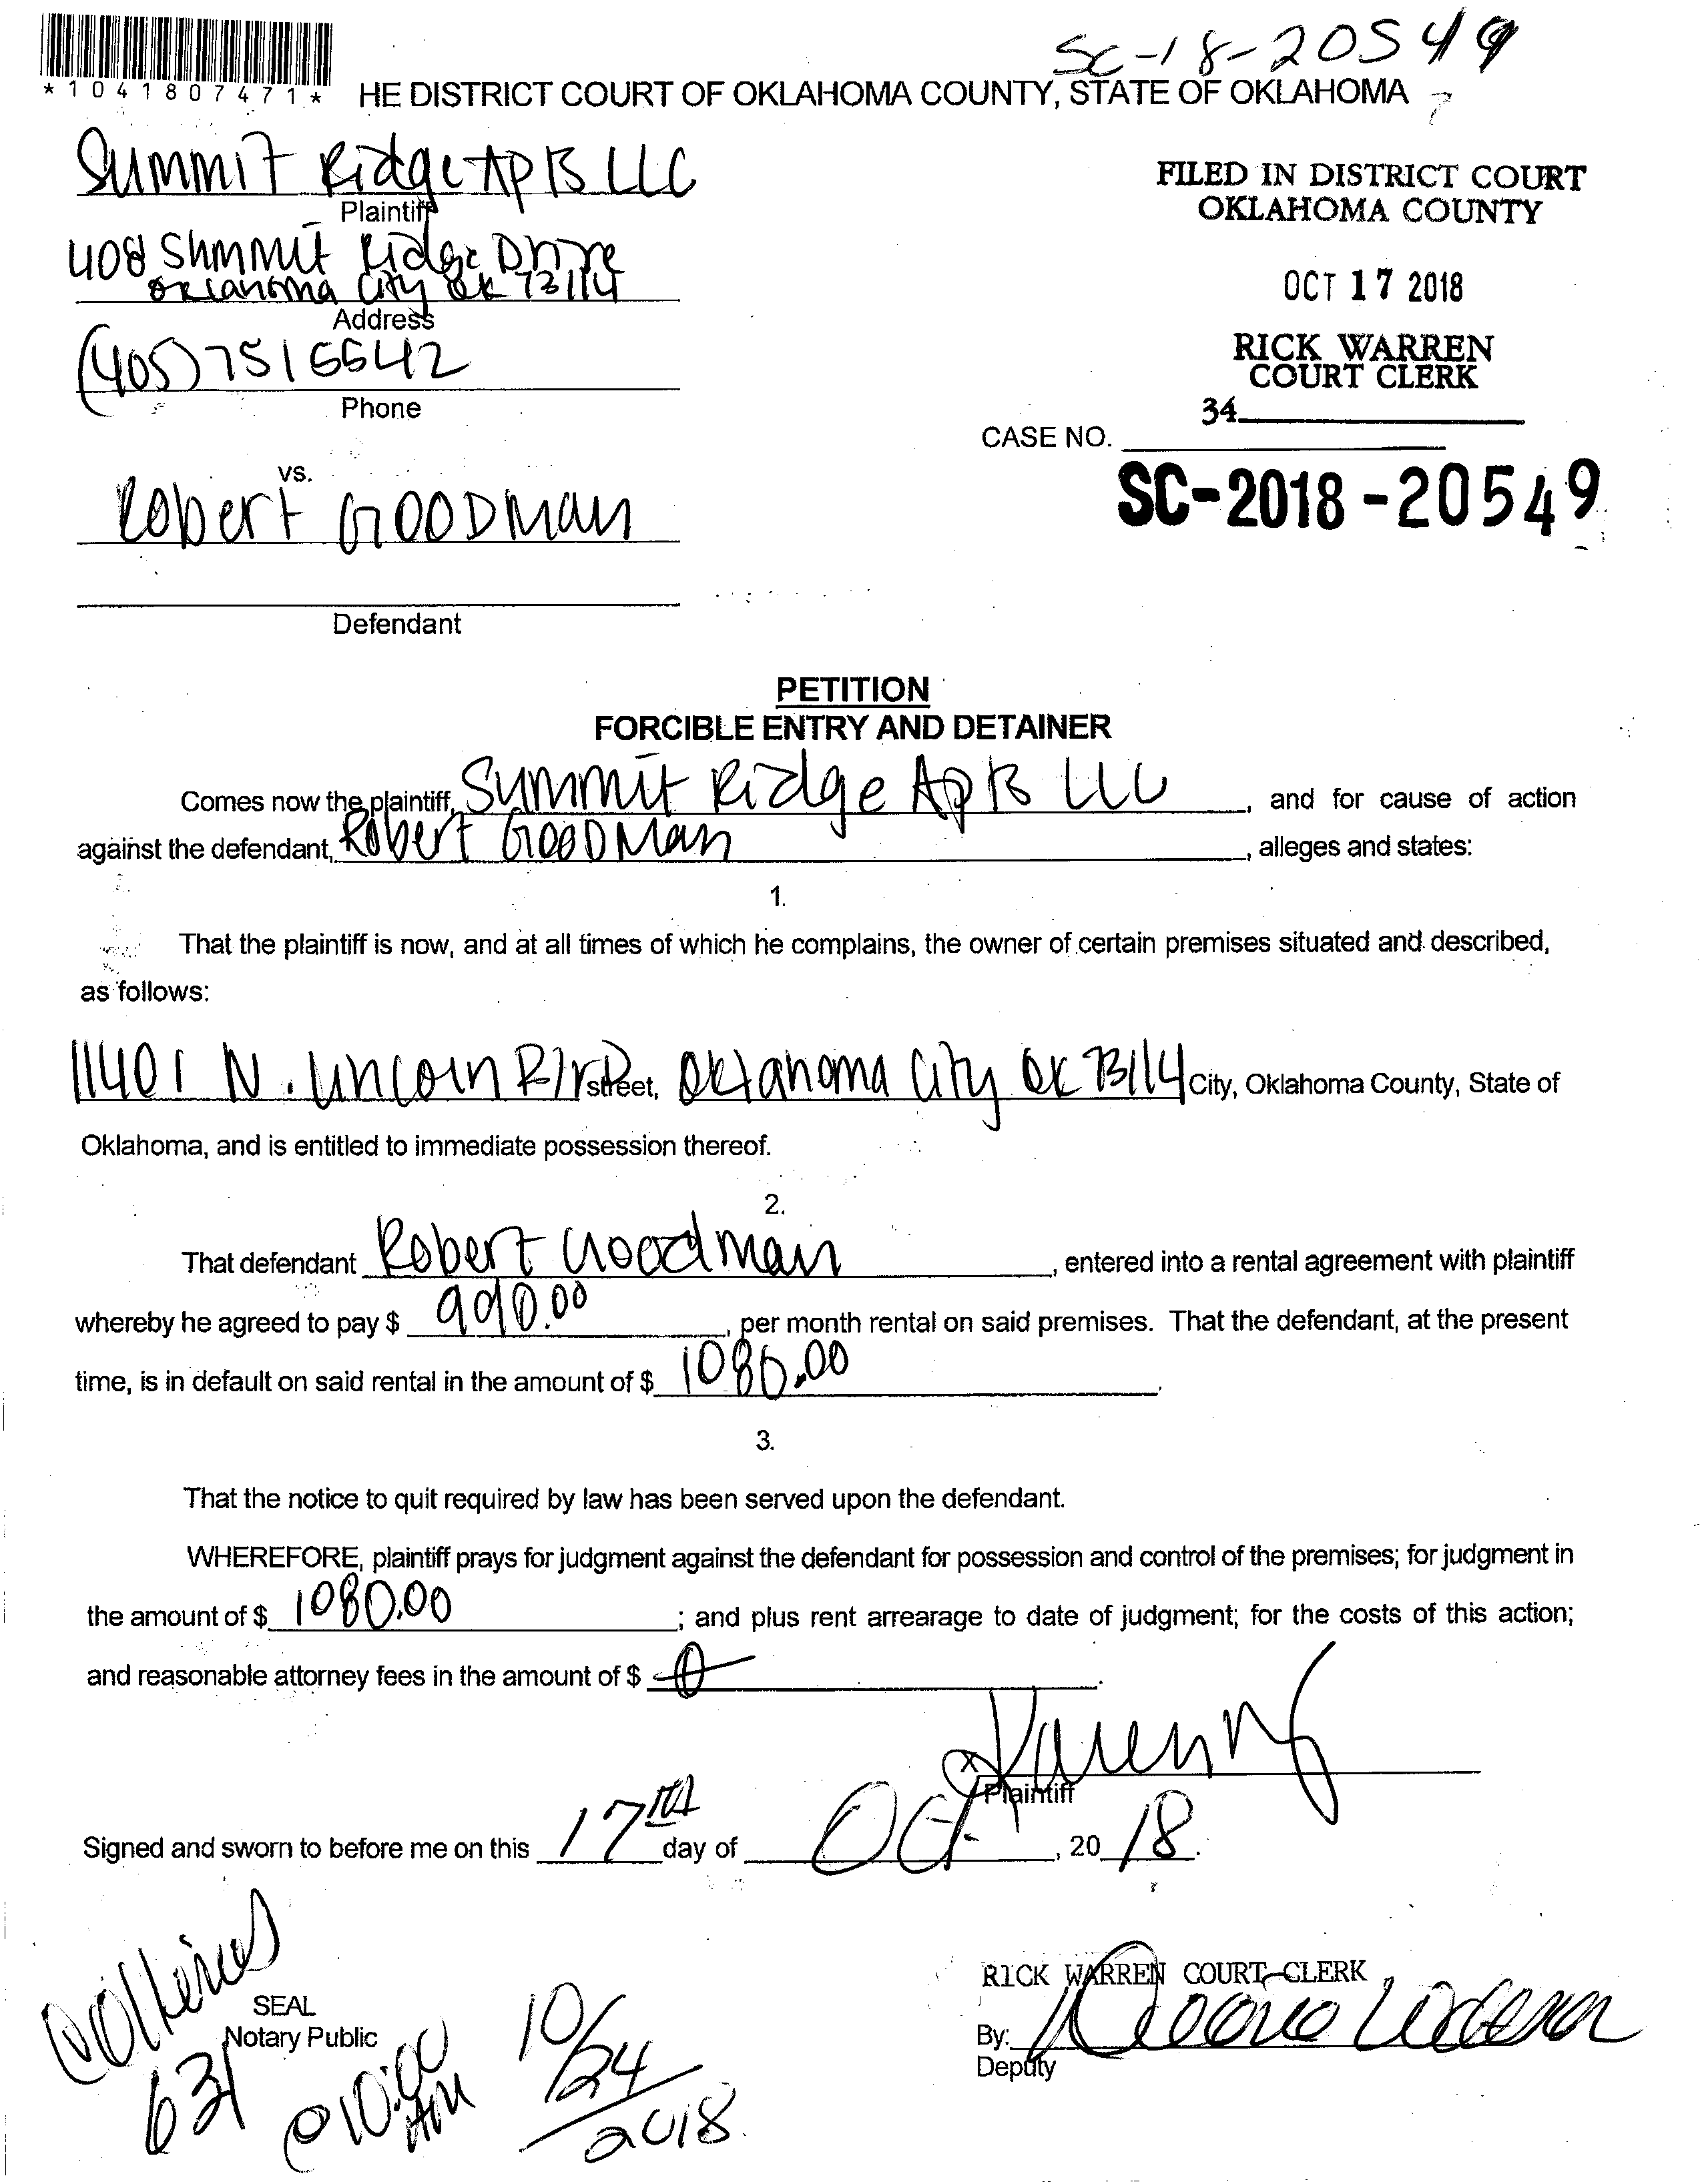 SC-18-20549
*1041807471*
HE DISTRICT COURT OF OKLAHOMA COUNTY, STATE OF OKLAHOMA
Summit Ridge Apts LLC
Plaintiff
408 Summit Ridge Drive
Oklahoma City OK 73114
Address
(405) 7516642
Phone
FILED IN DISTRICT COURT
OKLAHOMA COUNTY
OCT 17 2018
RICK WARREN
COURT CLERK
34
CASE NO.
SC-2018-20549
vs.
Robert GOODMAN
Defendant
PETITION
FORCIBLE ENTRY AND DETAINER
Comes now the plaintiff, Summit Ridge Apts LLC, and for cause of action
against the defendant, Robert GOODMan, alleges and states:
1.
That the plaintiff is now, and at all times of which he complains, the owner of certain premises situated and described,
as follows:
11401 N. Lincoln Blvd street, Oklahoma City OK 73114 City, Oklahoma County, State of
Oklahoma, and is entitled to immediate possession thereof.
2.
That defendant Robert Goodman, entered into a rental agreement with plaintiff
whereby he agreed to pay $ 990.00, per month rental on said premises. That the defendant, at the present
time, is in default on said rental in the amount of $ 1080.00.
3.
That the notice to quit required by law has been served upon the defendant.
WHEREFORE, plaintiff prays for judgment against the defendant for possession and control of the premises; for judgment in
the amount of $ 1080.00; and plus rent arrearage to date of judgment; for the costs of this action;
and reasonable attorney fees in the amount of $ 0.
Plaintiff
Signed and sworn to before me on this 17th day of Oct., 2018.
Collins
631
@10:00
AM
10/24/2018
SEAL
Notary Public
RICK WARREN COURT CLERK
By:
Deputy